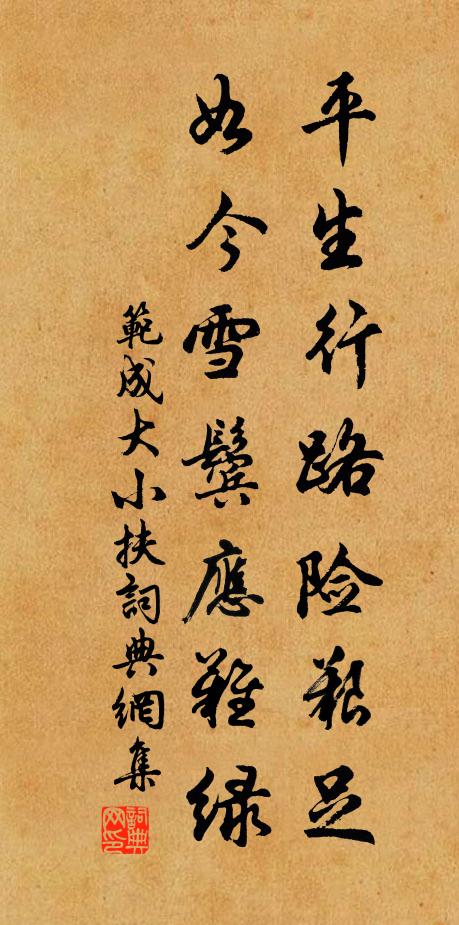 平生行路险艰足
如今雪鬓應難绿
範成大小扶詞典網集
詞典网印